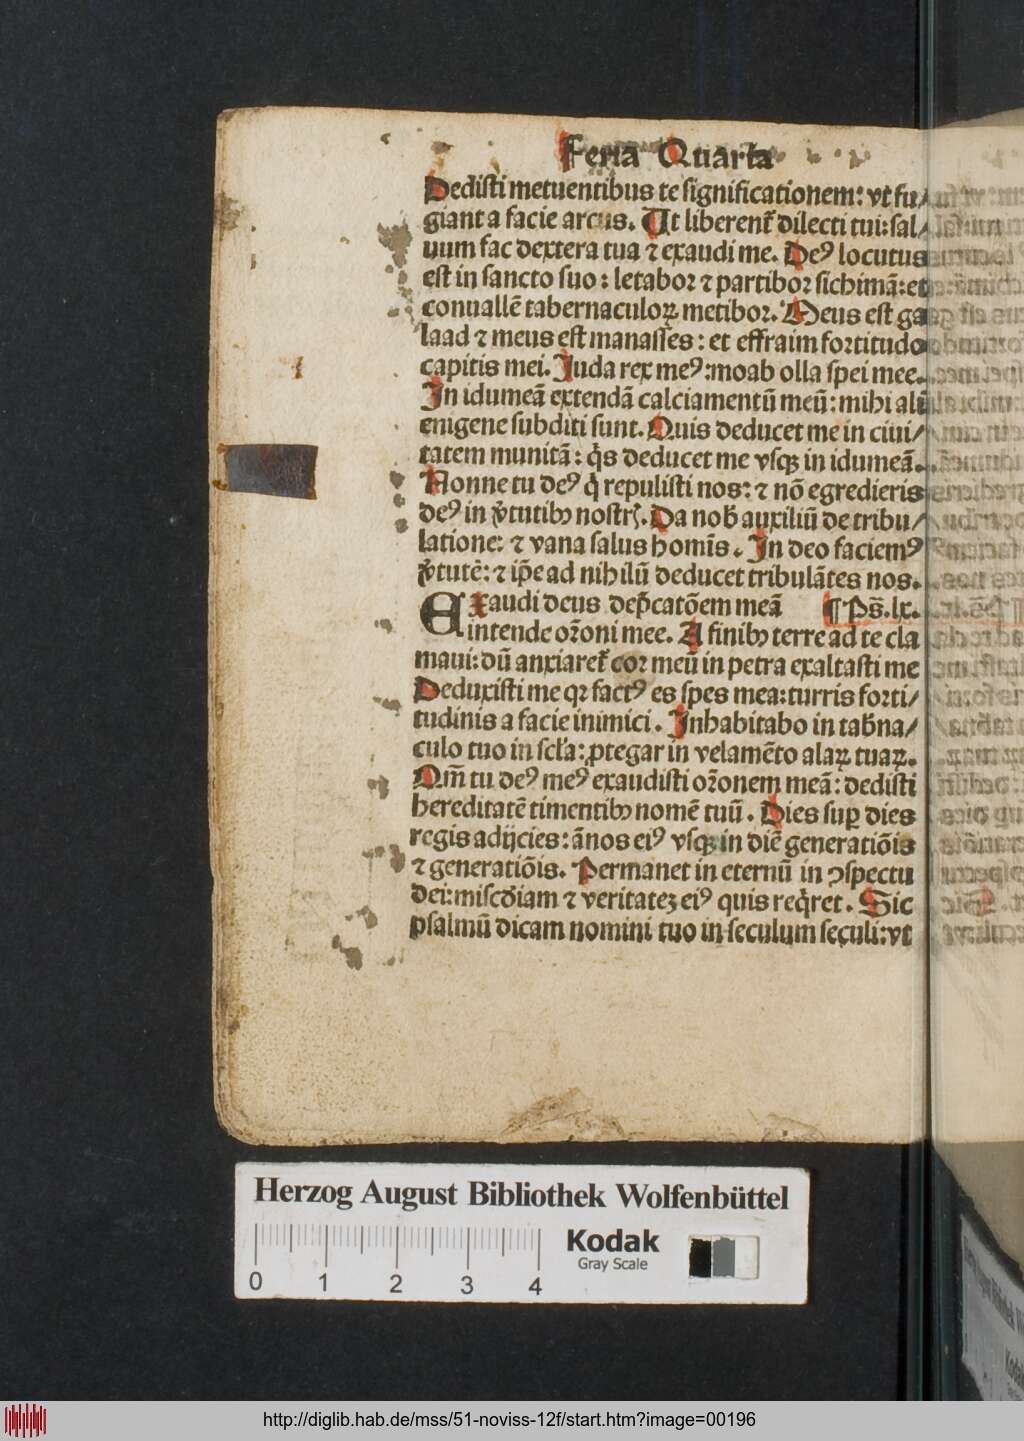 Feria Quarta
Dedisti metuentibus te significationem: vt fu/
giant a facie arcus. Ut liberent᷑ dilecti tui: sal/
uum fac dextera tua ⁊ exaudi me. Deꝰ locutus
est in sancto suo: letaboꝛ ⁊ partiboꝛ sichimā: et
conuallē tabernaculoꝝ metiboꝛ. Meus est ga
laad ⁊ meus est manasses: et effraim foꝛtitudo
capitis mei. Juda rex meꝰ: moab olla spei mee.
In idumeā extendā calciamentū meū: mihi ali
enigene subditi sunt. Quis deducet me in ciui/
tatem munitā: q̇s deducet me vsqꝫ in idumeā.
Nonne tu deꝰ q̇ repulisti nos: ⁊ nō egredieris
deꝰ in v̓tutibꝫ nostrꝭ. Da nob̄ auxiliū de tribu/
latione: ⁊ vana salus homīs. In deo faciemꝰ
v̓tutē: ⁊ ip̄e ad nihilū deducet tribulātes nos.
Exaudi deus dep̄catōem meā ¶ Ps̄. lx.
intende oꝛ̄oni mee. A finibꝫ terre ad te cla
maui: dū anxiaret᷑ coꝛ meū in petra exaltasti me
Deduxisti me qꝛ factꝰ es spes mea: turris foꝛti/
tudinis a facie inimici. Inhabitabo in tab̄na/
culo tuo in scl̓a: ꝓtegar in velamēto alaꝝ tuaꝝ.
Qm̄ tu deꝰ meꝰ exaudisti oꝛ̄onem meā: dedisti
hereditatē timentibꝫ nomē tuū. Dies suꝑ dies
regis adijcies: ānos eiꝰ vsqꝫ in diē generatiōis
⁊ generatiōis. Permanet in eternū in ꝯspectu
dei: mis̄cd̓iam ⁊ veritateꝫ eiꝰ quis req̇ret. Sic
psalmū dicam nomini tuo in seculum seculi: vt
Herzog August Bibliothek Wolfenbüttel
Kodak
Gray Scale
0 1 2 3 4
http://diglib.hab.de/mss/51-noviss-12f/start.htm?image=00196